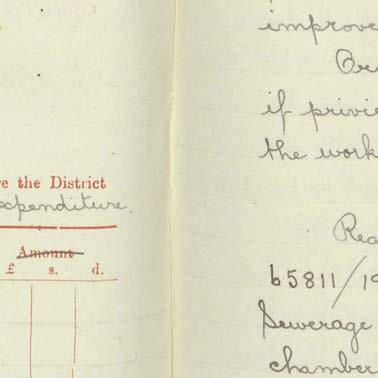 re the District
expenditure
Amount
£ s. d.
improve
Or
if privie
the work
Rea
65811/19
Sewerage
chamber